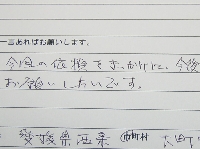 一言あればお願いします。
今度の依頼をきっかけに、今後
お願いしたいです。
愛媛県 市町村